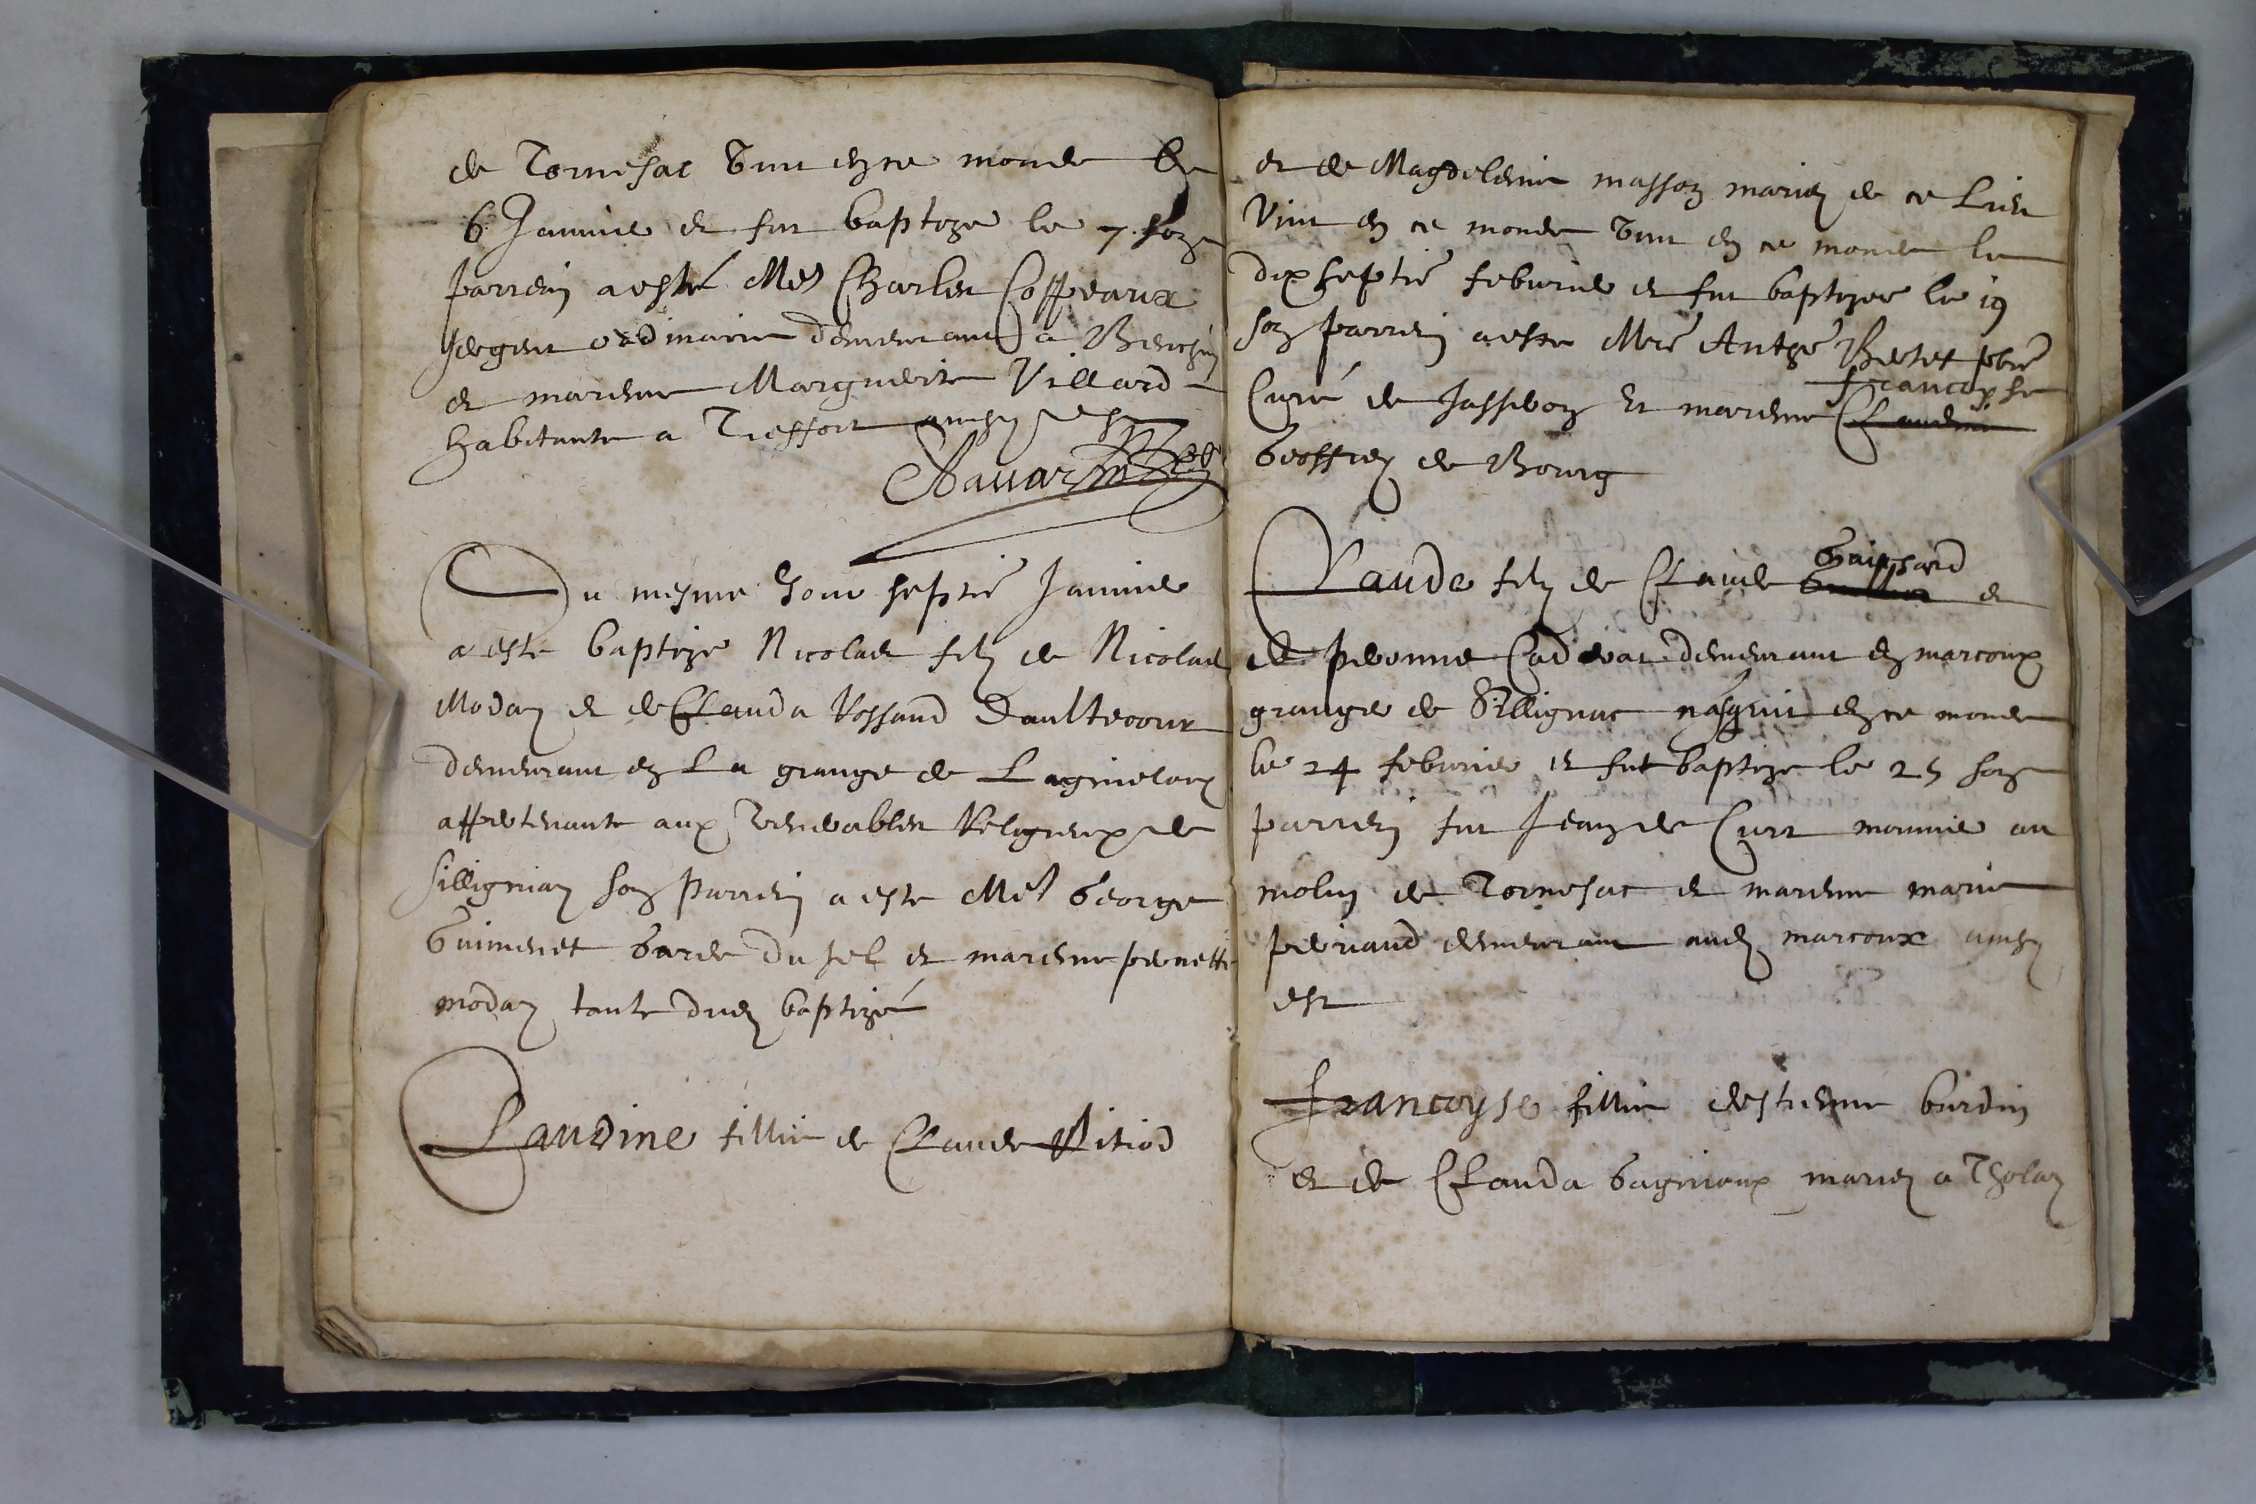 de Tornesac vint en ce monde le
6 Janvier et fut baptize le 7 son
parrein a esté Mes Charles Coppeaux
sergent ordinaire demeurant a
et mareine Marguerite Villard
habitante a Treffort ainsy est

Du mesme Jour septie Janvier
a este baptize Nicolas filz de Nicolas
Moday et de Clauda Vossand Daultecour
demeurant en La grange de
appartenante aux venerables Religieux de
Sillignia son Parrein a este Mes George
Guimenet Garde du sel et mareine pernette
moday tante dud baptizé
Claudine fillie de Claude Vitiod
et de Magdeleine masson mariez de ce Lieu
Vint en ce monde vint en ce monde le
dix septie febvrier et fut baptizee le 19
son parrein a este Mre Anthe Bertet pbre
francoyse
Curé de Jasseron et mareine Claudine
Geoffrey de Bourg
Gaissard
Claude filz de Claude et
de pernne Cadevat demeurant en marcoux
grange de Sillignac nasquit en ce monde
le 24 febvrier et fut baptize le 25 son
parrein fut Jean de Curt mounier au
molin de Tornesac et mareine marie
pernaud demeurant aud marcoux ainsy
est
francoyse fillie destienne burdin
et de Clauda Gagnioux mariez a Tholay